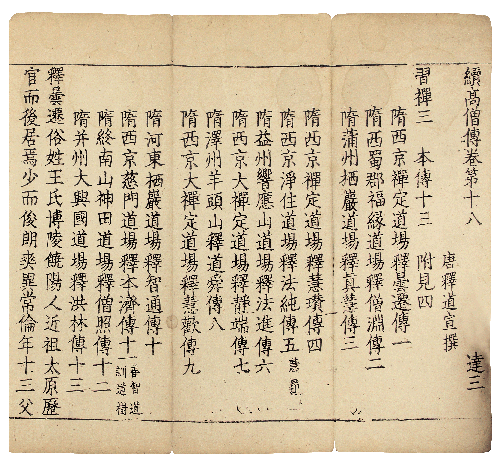 續高僧傳卷第十八
唐釋道宣撰 達三
習禪三 本傳十三 附見四
隋西京禪定道場釋曇遷傳一
隋西蜀郡福緣道場釋僧淵傳二
隋蒲州栖巖道場釋真慧傳三
隋西京禪定道場釋慧瓚傳四
隋西京淨住道場釋法純傳五
隋益州響應山道場釋法進傳六
隋西京大禪定道場釋靜端傳七
隋澤州羊頭山釋道舜傳八
隋西京大禪定道場釋慧歡傳九
隋河東栖巖道場釋智通傳十
隋西京慈門道場釋本濟傳十一
隋終南山神田道場釋僧照傳十二
隋并州大興國道場釋洪林傳十三
釋曇遷俗姓王氏博陵饒陽人近祖太原歷
官而後居焉少而俊朗爽異常倫年十三父